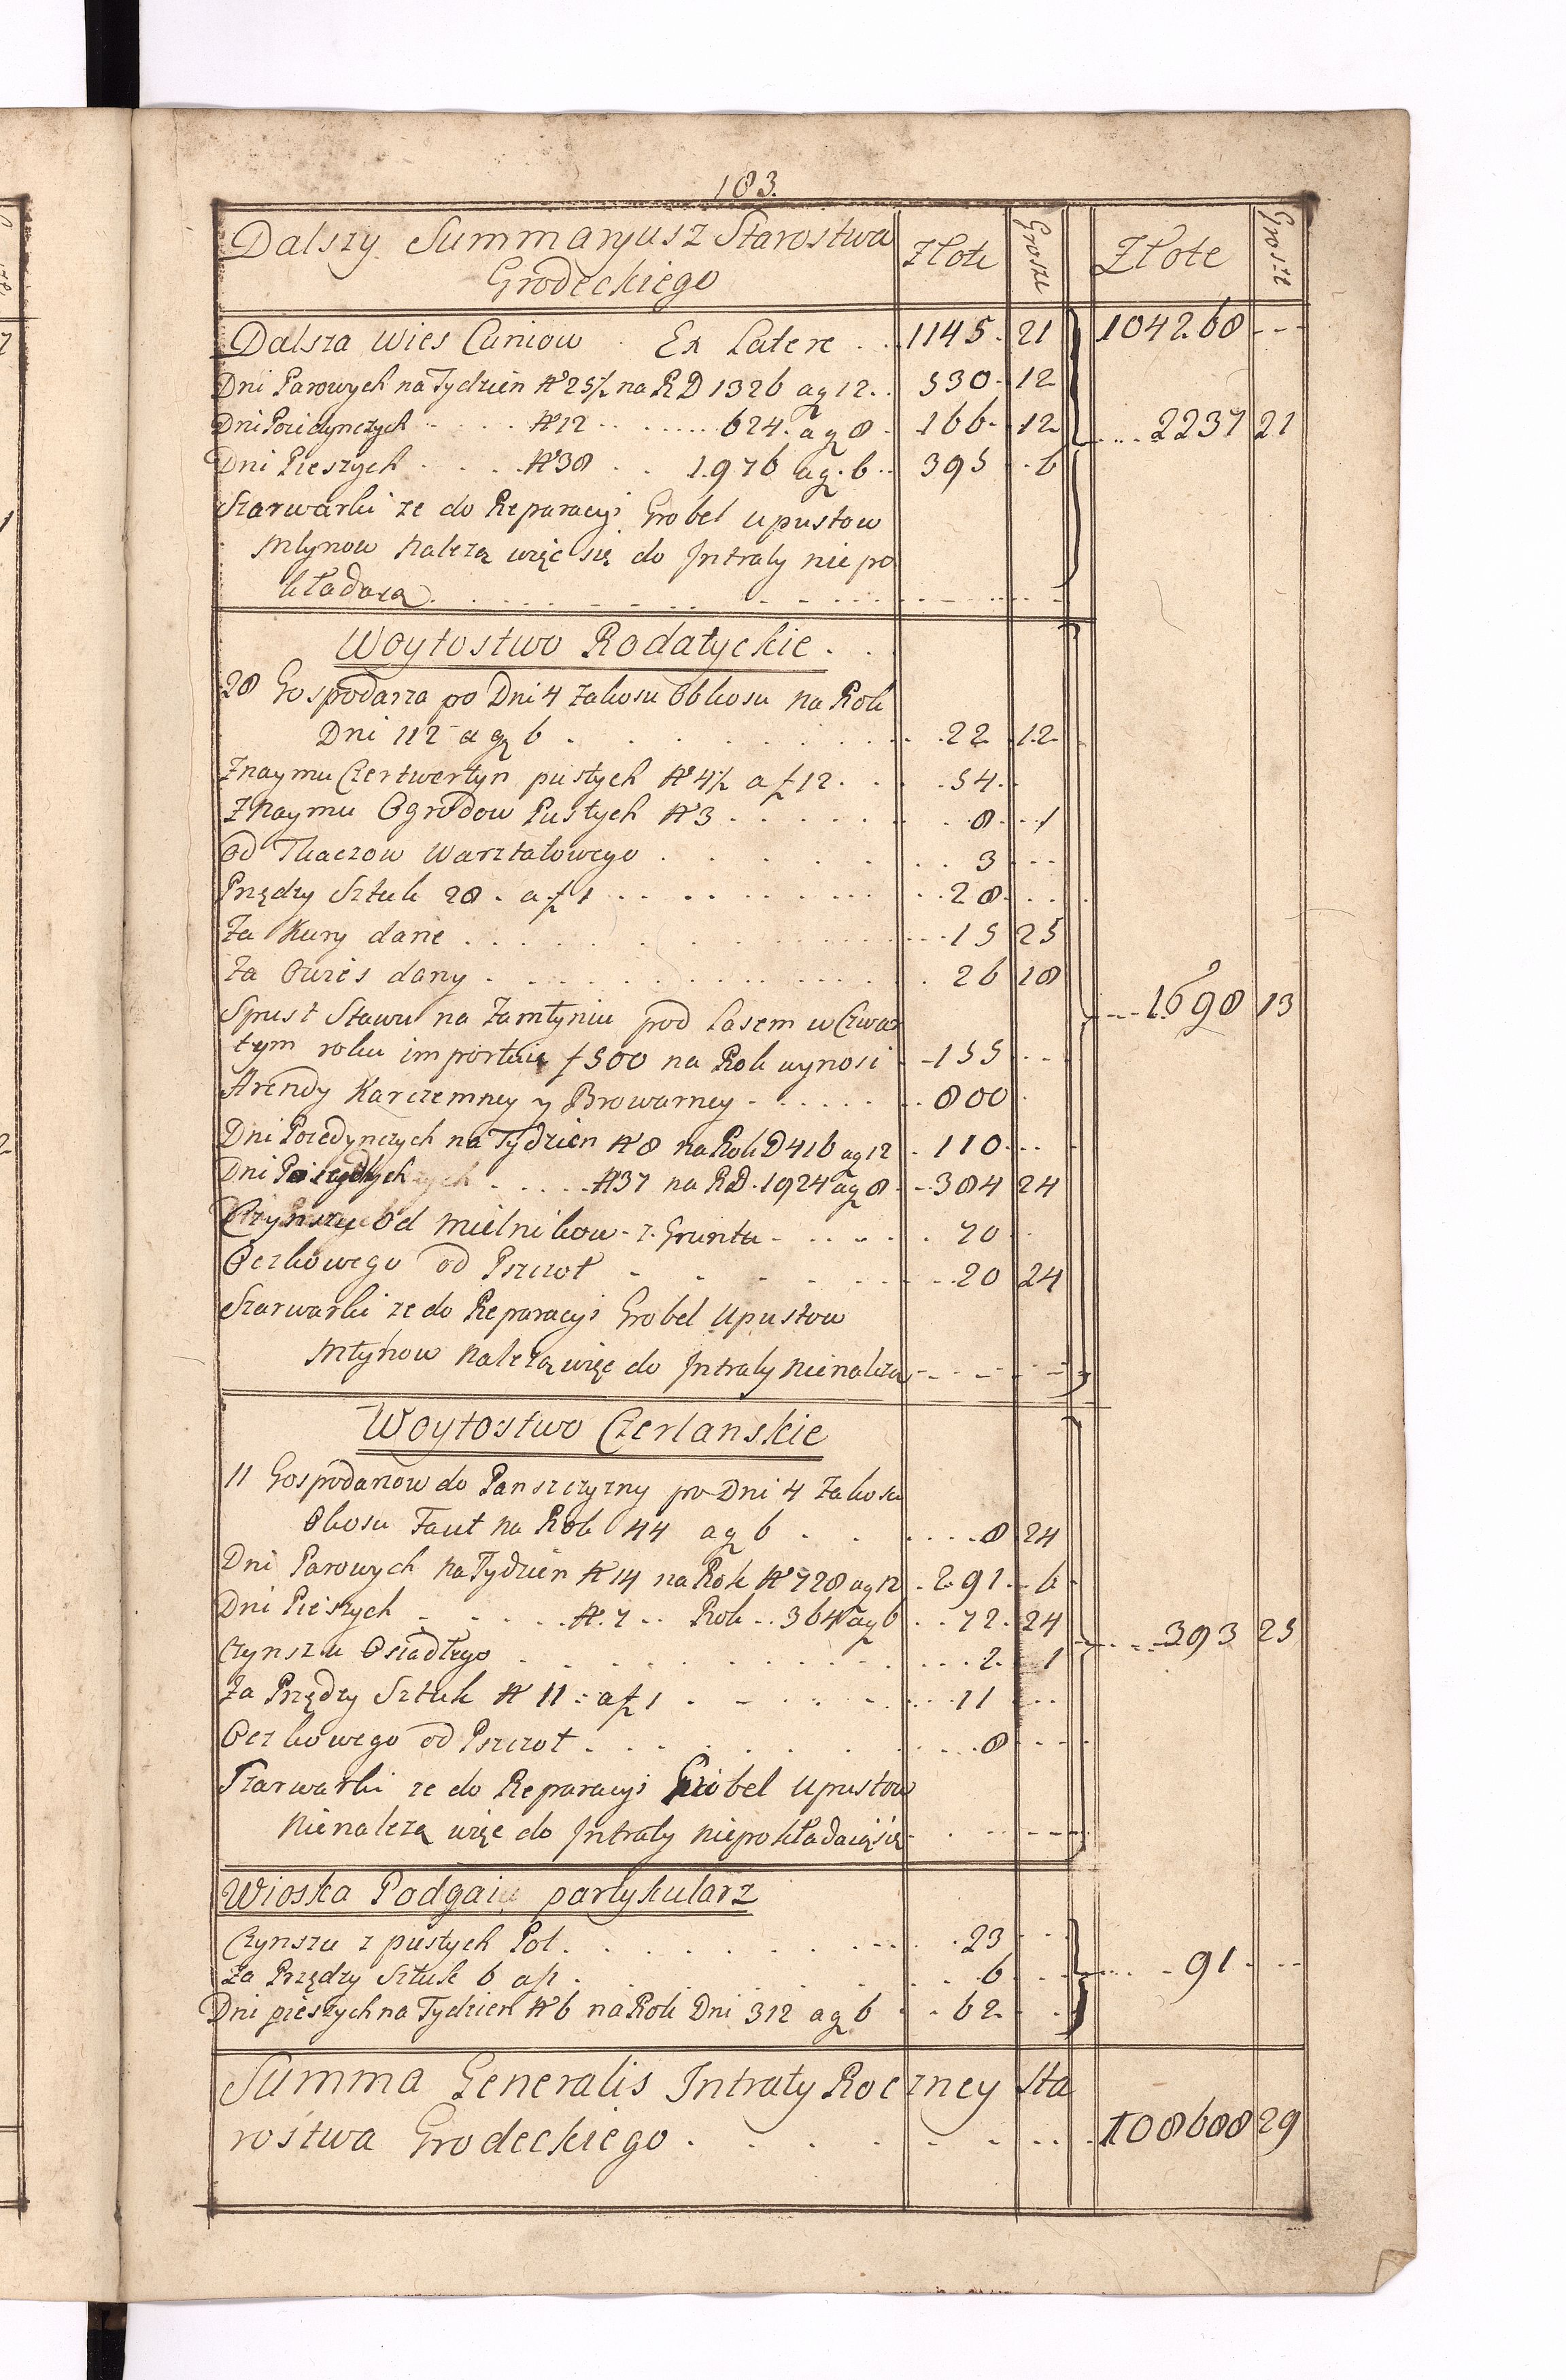 183.
Dalszy Summaryusz Starostwa Złote Grosze Złote Grosze
Grodeckiego
Dalsza Wies Cuniow Ex Latere 1145 21 104268
Dni Parowych na Tydzien N 25½ na R D 1326 a g 12 530 12
Dni Poiedynczych N 12 624 a g 8 166 12 2237 21
Dni Pieszych N 38 1976 a g 6 395 6
Szarwarki ze do Reparacyi Grobel upustow
Młynow należą więc się do Intraty nie po
kładaią
Woytostwo Rodatyckie
28 Gospodarza po Dni 4 Zakosu Obkosu na Rok
Dni 112 a g 6 22 12
Znaymu Czertwertyn pustych N 4½ a f 12 54
Znaymu Ogrodow Pustych N 3 8 1
Od Tkaczow Warztatowego 3
Przędzy Sztuk 28 a f 1 28
Za Kury dane 15 25
Za Owies dany 26 18
Spust Stawu na Zamłyniu pod Lasem w Czwar 1698 13
tym roku importuie f 500 na Rok wynosi 155
Arendy Karczemney y Browarney 800
Dni Poiedynczych na Tydzien N 8 na Rok D 416 a g 12 110
Dni N 37 na R D 1924 a g 8 384 24
Czynszu Od Mielnikow z Gruntu 70
Oczkowego od Pszczoł 20 24
Szarwarki ze do Reparacyi Grobel Upustow
Młynow należą więc do Intraty nienależą
Woytostwo Czerlanskie
11 Gospodarzow do Panszczyzny po Dni 4 Zakosu
Obosu Facit na Rok 44 a g 6 8 24
Dni Parowych na Tydzien N 14 na Rok N 728 a g 12 291 6
Dni Pieszych N 7 Rok 364 a g 6 72 24 393 25
Czynszu Osiadłego 2 1
Za Przędzy Sztuk N 11 a f 1 11
Oczkowego od Pszczoł 8
Szarwarki ze do Reparacyi Grobel Upustow
Nienależą więc do Intraty niepokładaią się
Wioska Podgaiu partykularz
Czynszu z pustych Pol 23
Za Przędzy Sztuk 6 a f 1 6 91
Dni pieszych na Tydzien N 6 na Rok Dni 312 a g 6 62
Summa Generalis Intraty Roczney Sta
rostwa Grodeckiego 108688 29